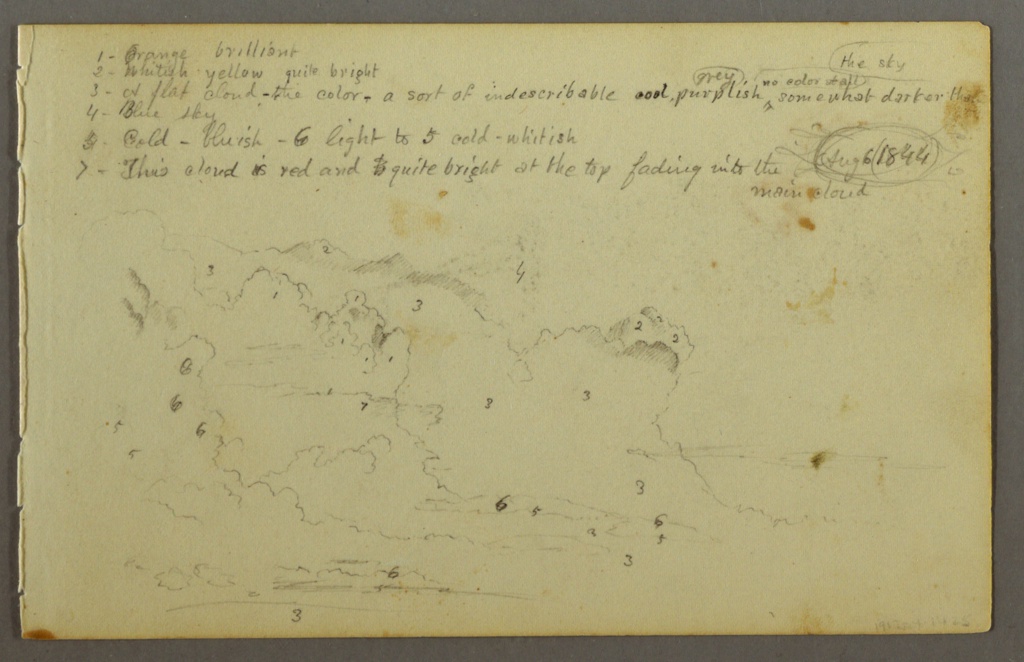 1 - Orange brilliant
2 - Whitish yellow quite bright
the sky
grey no color at all
3 - A flat cloud - the color - a sort of indescribable cool, purplish ‸ somewhat darker than
4 - Blue sky
5 - Cold - bluish - 6 light to 5 cold - whitish
Aug 6 1844
7 - This cloud is red and quite bright at the top fading into the
main cloud
2
4
3
1
1
3
2 2
1
1
8
3
7
8
6
5
6
5
3
6
5
6
3
5
3
6
5
3